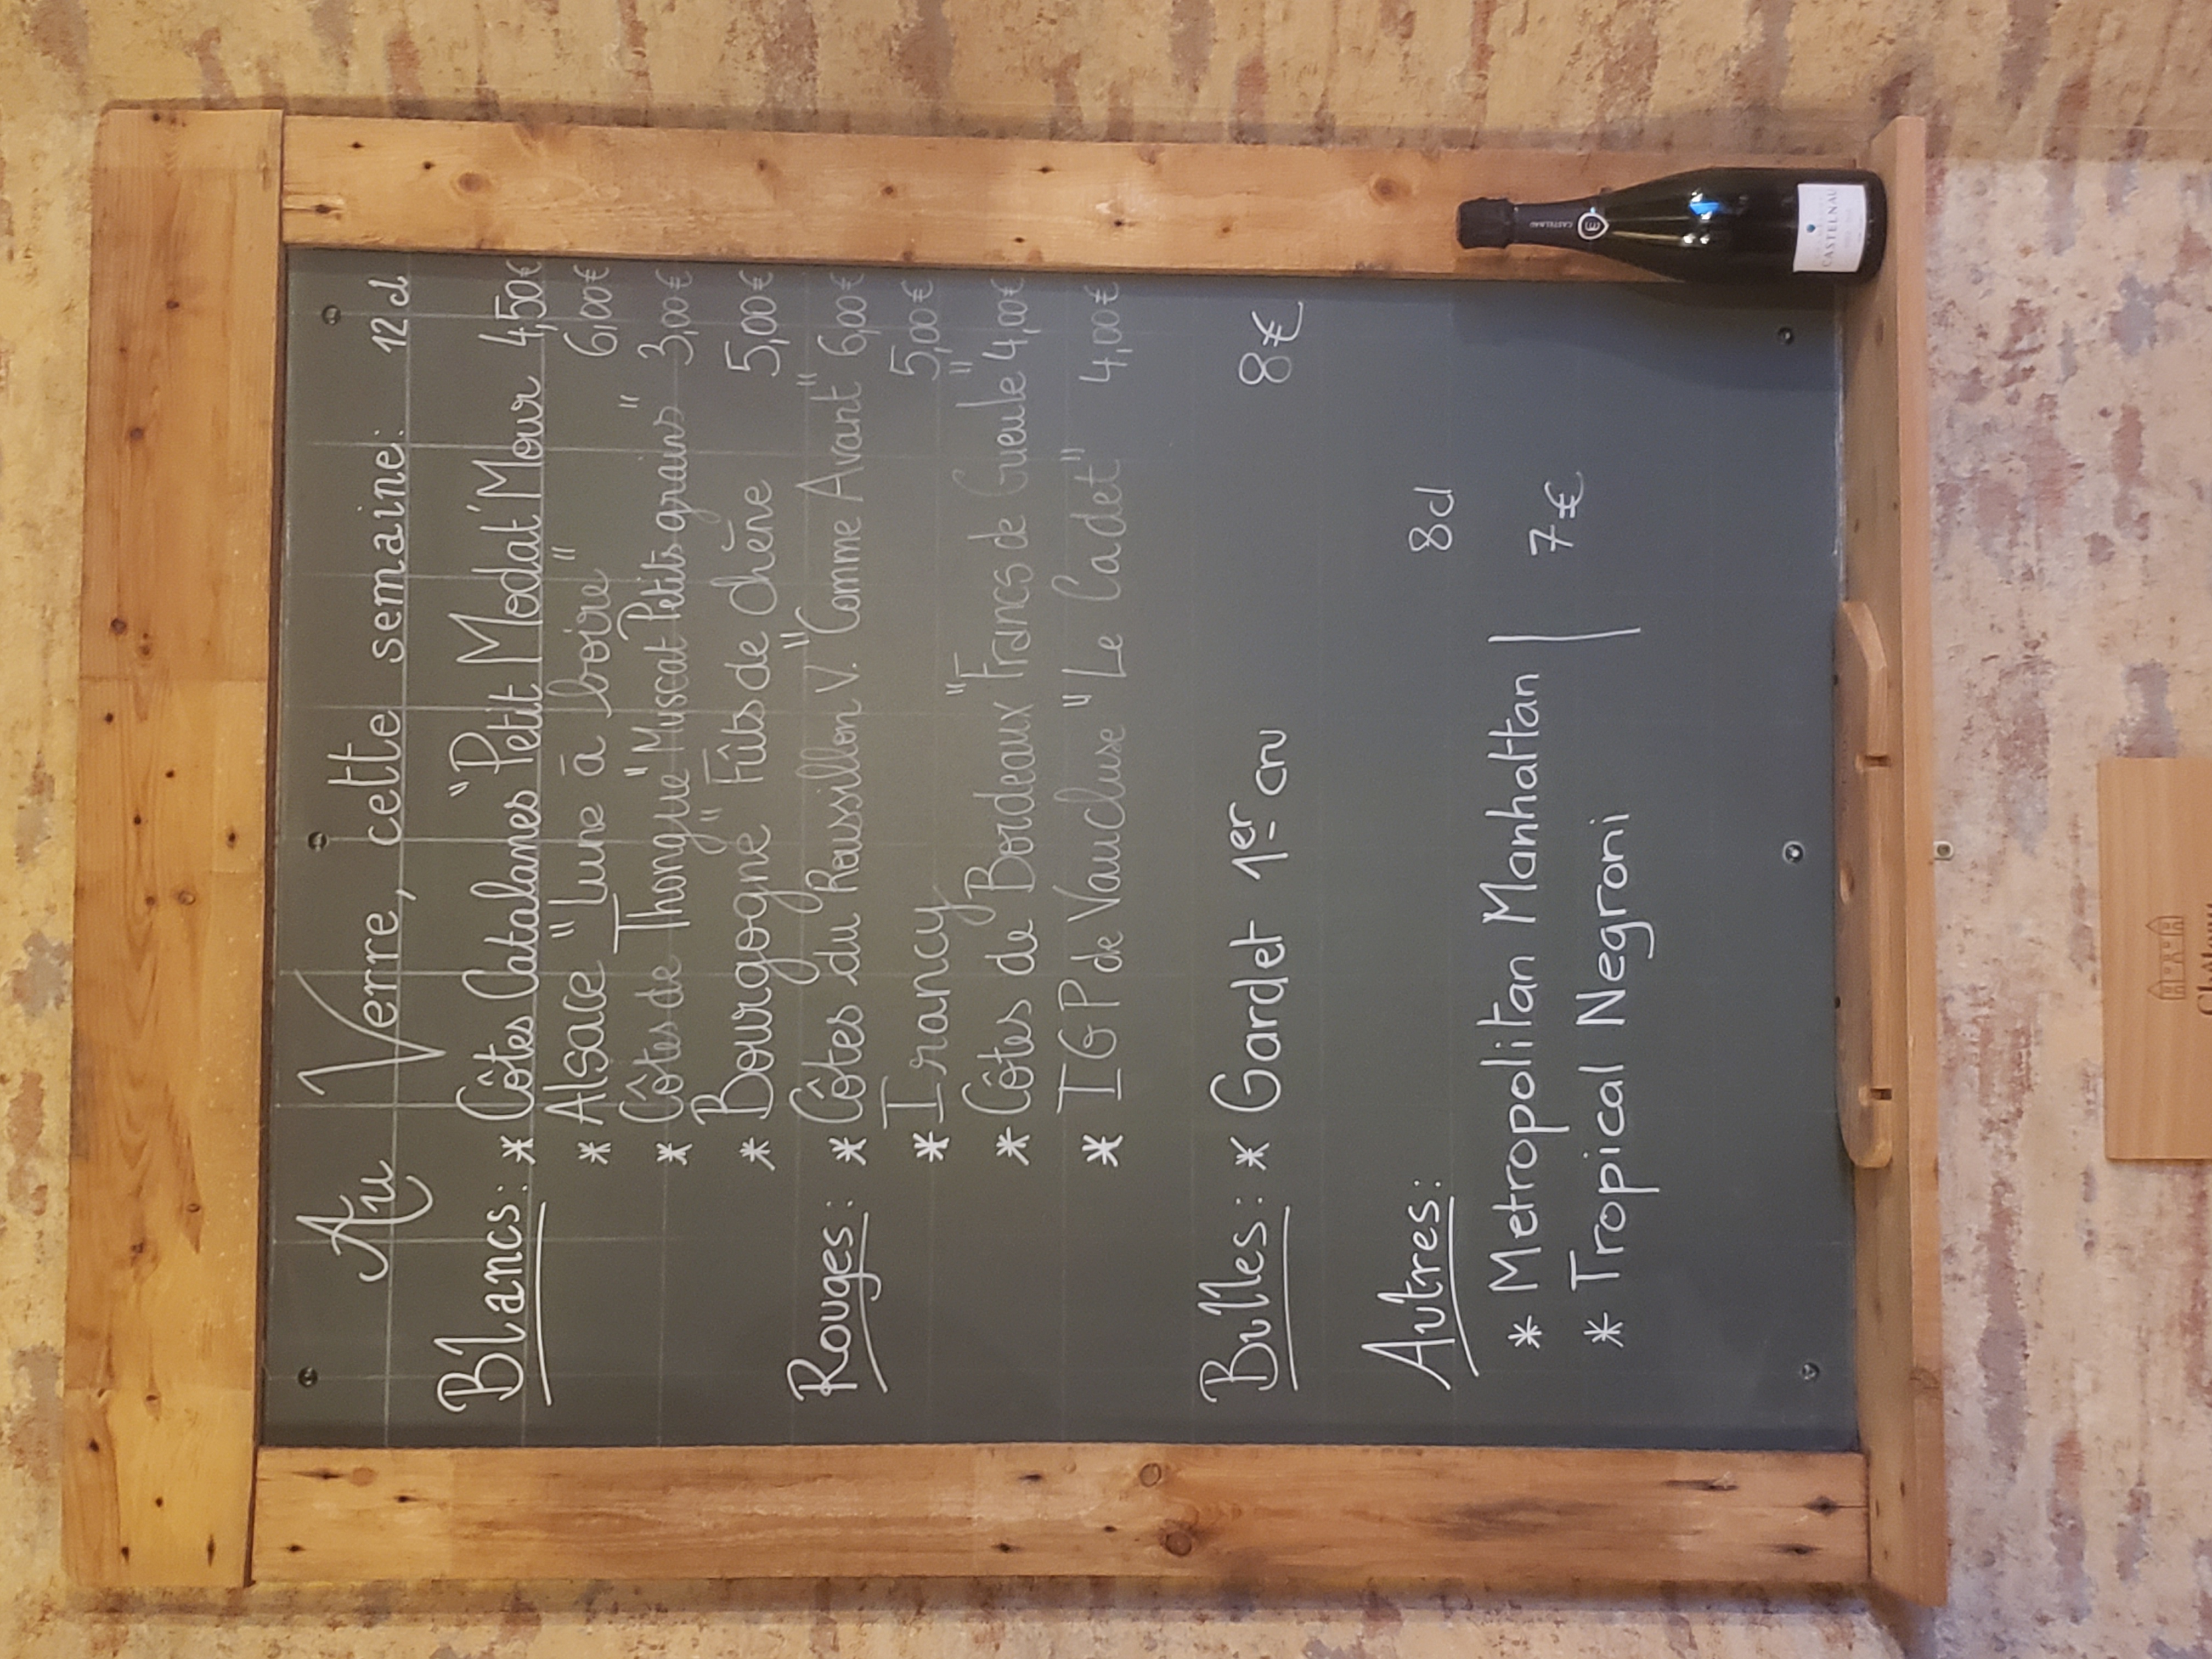 Au Verre, cette semaine: 12cl
Blancs: * Côtes Catalanes "Petit Modat'Mour" 4,50€
* Alsace "Lune à boire" 6,00€
* Côtes de Thongue "Muscat Petits grains" 3,00€
* Bourgogne "Fûts de chêne" 5,00€
Rouges: * Côtes du Roussillon V. "Comme Avant" 6,00€
* Irancy 5,00€
* Côtes de Bordeaux "Francs de Gueule" 4,00€
* IGP de Vaucluse "Le Cadet" 4,00€
Bulles: * Gardet 1er cru 8€
Autres: 8cl
* Metropolitan Manhattan | 7€
* Tropical Negroni
CASTELNAU
CASTELNAU